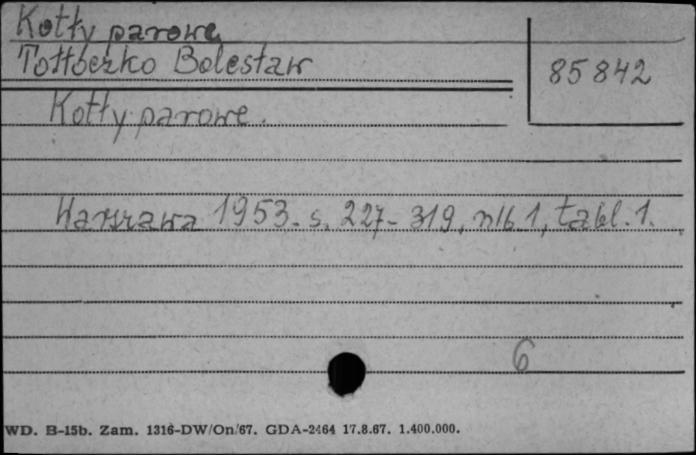 Kotły parowe
Tołłoczko Bolesław
85842
Kotły parowe.
Warszawa 1953. s. 227-319, nlb. 1, tabl. 1.
6
WD. B-15b. Zam. 1316-DW/On/67. GDA-2464 17.8.67. 1.400.000.